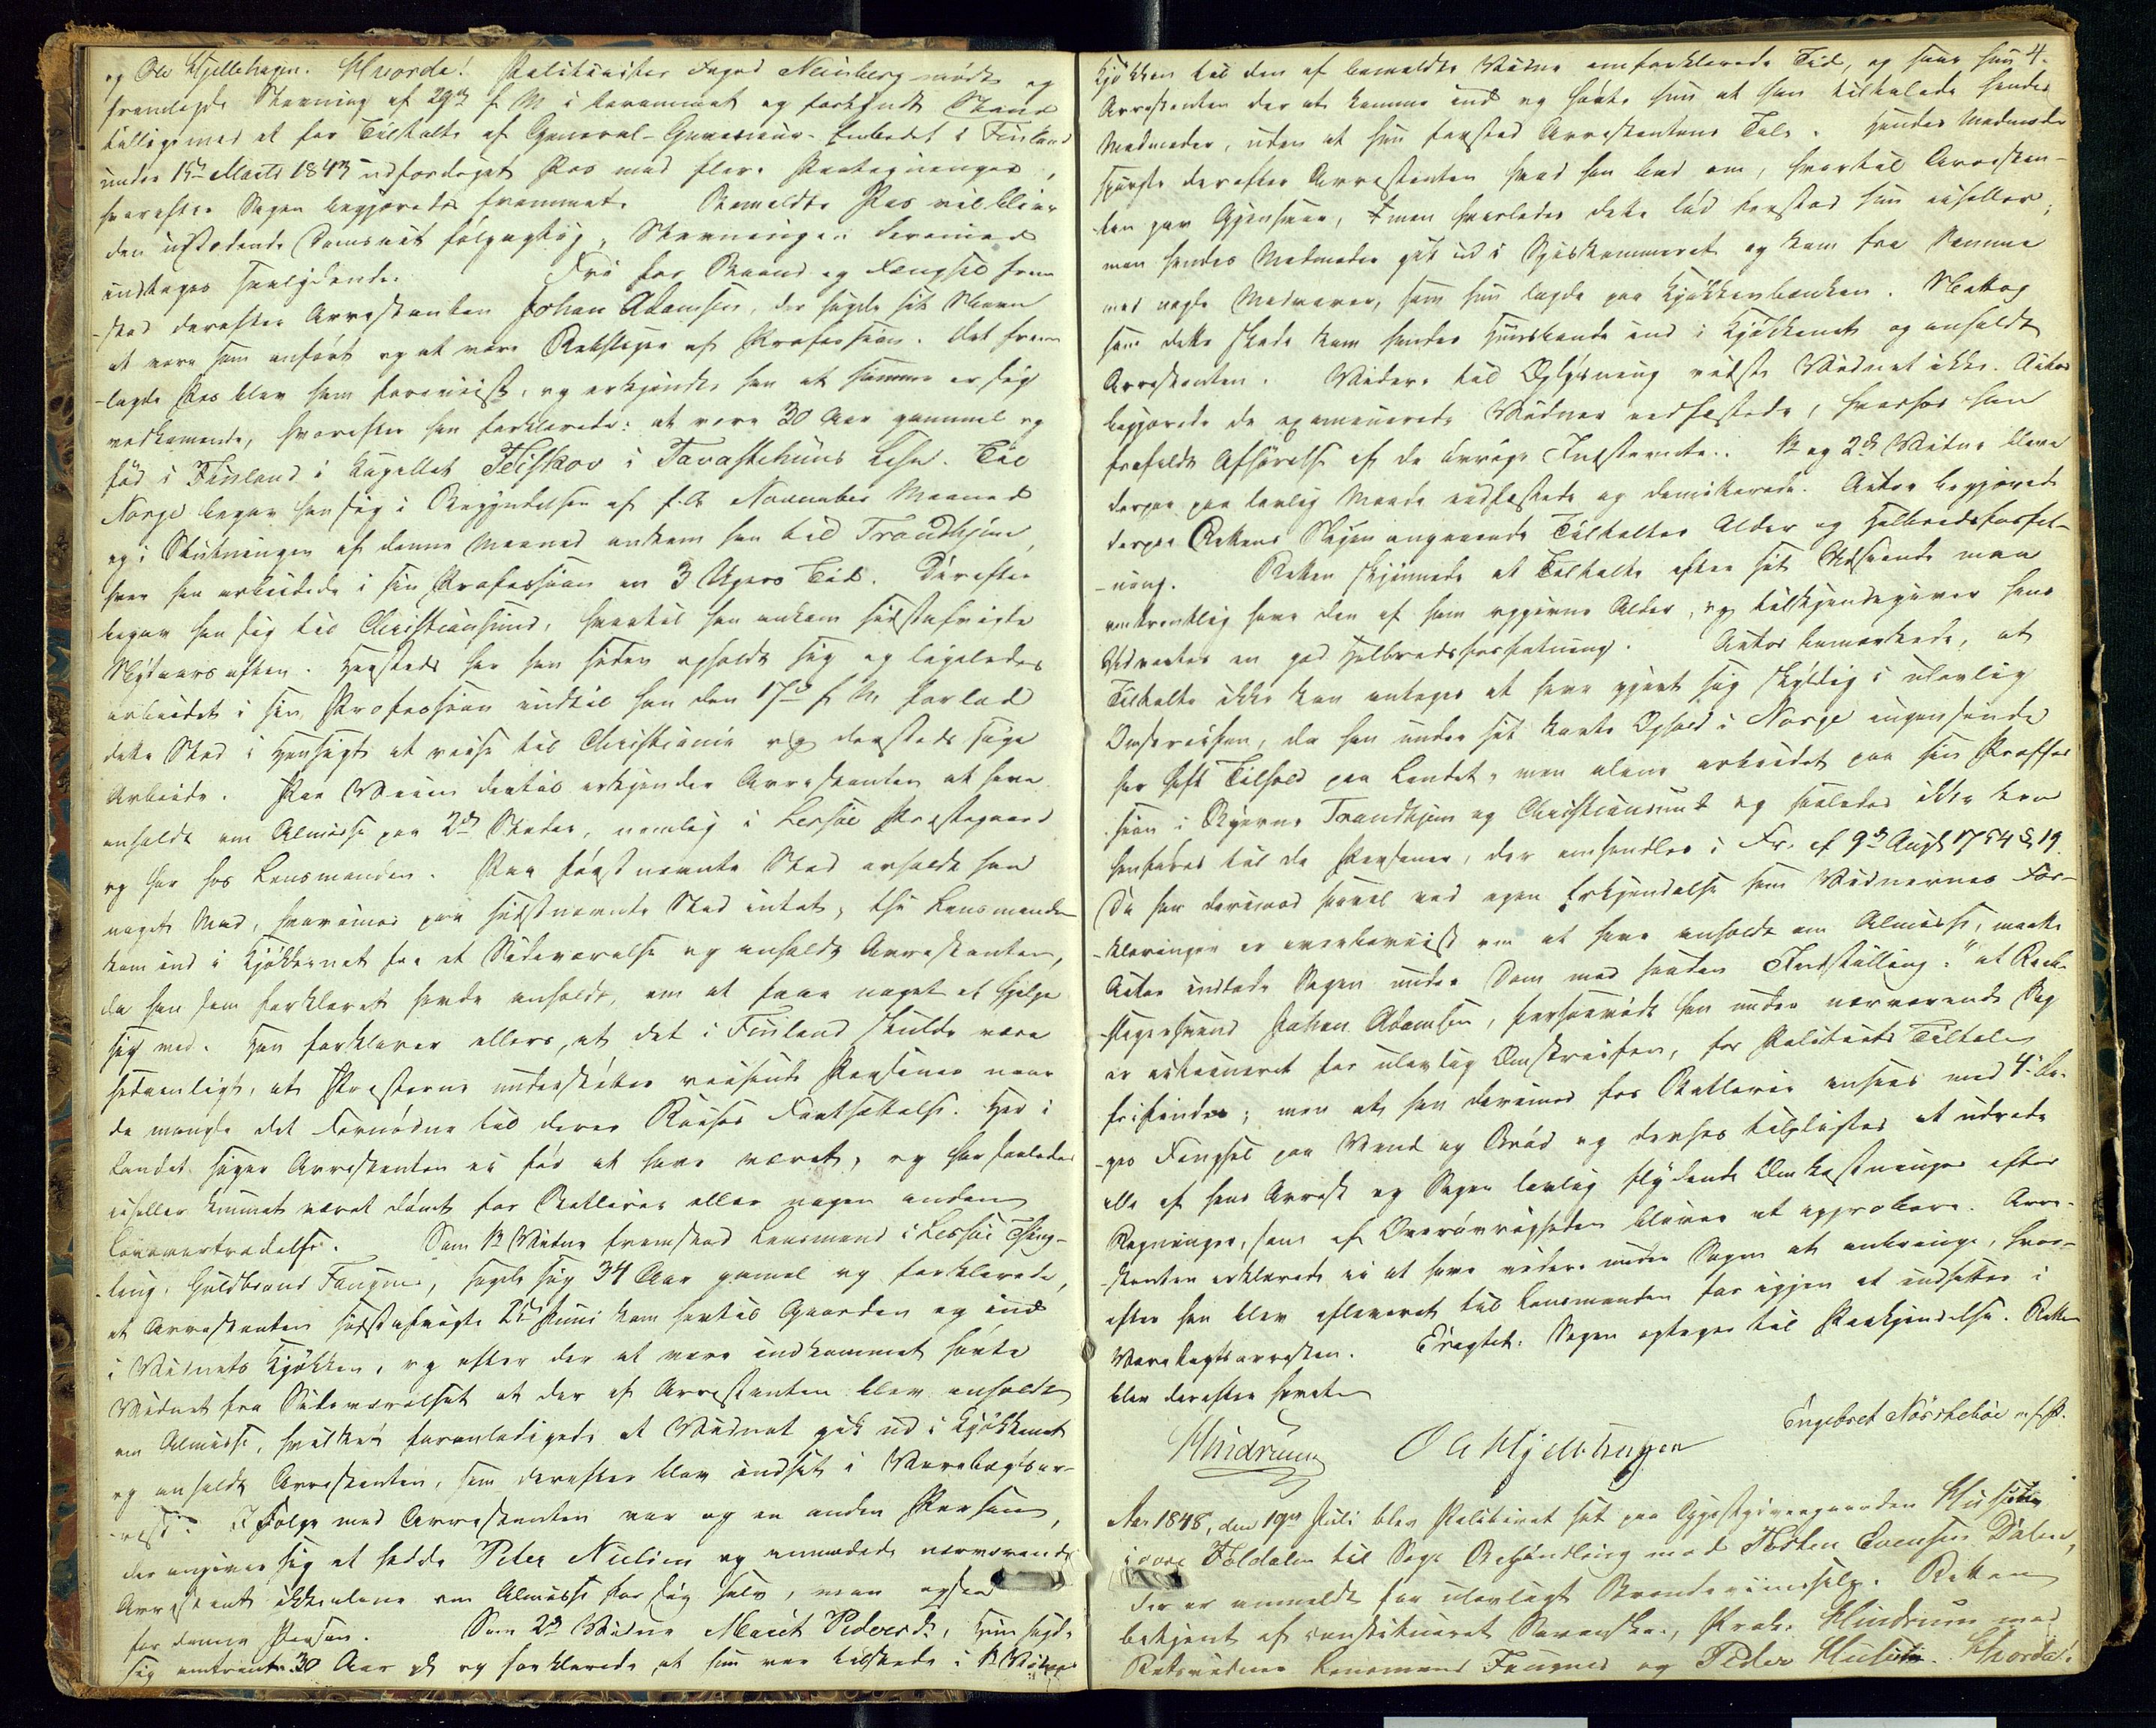 og Ole Hjellehagen. Hvorda! Politimester Foged Neuberg mødte og
fremlagde Stevning af 29de f. M. i berammet og forkyndt Stand
tilligemed et for Tiltalte af General-Guverneur-Embedet i Finland
under 15de Marts 1843 udfærdiget Pas med flere Paategninger,
hvorefter Sagen begjæredes fremmet. Bemeldte Pas vil blive
den udstedende Domsact følgagtig, Stevningen derimod
indtages saalydende. Fri for Baand og Fængsel frem-
-stod derefter Arrestanten Johan Adamsen, der sagde sit Navn
at være som anført og at være Rebslager af Profession. Det frem-
-lagte Pas blev ham foreviist, og erkjendte han at samme er sig
vedkommende, hvorefter han forklarede: at være 30 Aar gammel og
fød i Finland i Capellet Teiskov i Tavastehuus Lehn. Til
Norge begav han sig i Begyndelsen af f. A. November Maaned
og i Slutningen af denne Maaned ankom han til Trondhjem,
hvor han arbeidede i sin Profession en 3 Ugers Tid. Derefter
begav han sig til Christiansund, hvortil han ankom sidstafvigte
Nytaarsaften. Hersteds har han siden opholdt sig og ligeledes
arbeidet i sin Profession indtil han den 17de f. M. forlod
dette Sted i Hensigt at reise til Christiania og dersteds søge
Arbeide. Paa Veien dertil erkjender Arrestanten at have
anholdt om Almisse paa 2de Steder, nemlig i Lessøe Præstegaard
og her hos Lensmanden. Paa førstnævnte Sted erholdt han
noget Mad, hvorimod paa sidstnævnte Sted intet, thi Lensmanden
kom ind i Kjøkkenet fra et Sideværelse og anholdt Arrestanten,
da han som forklaret havde anholdt, om at faae noget at hjelpe
sig med. Han forklarer ellers, at det i Finland skulde være
sedvanligt, at Præsterne understøtter reisende Personer naar
de mangle det Fornødne til deres Reises Fortsættelse. Her i
Landet siger Arrestanten ei før at have været, og har saaledes
eiheller kunnet været dømt for Betlerie eller nogen anden
Lovovertrædelse. Som 1te Vidne fremstod Lensmand i Lessøe Thing-
-laug, Guldbrand Faugner, sagde sig 34 Aar gamel og forklarede,
at Arrestanten sidstafvigte 21de Juni kom hertil Gaarden og ind
i Vidnets Kjøkken, og efter der at være indkommet hørte
Vidnet fra Sideværelset at der af Arrestanten blev anholdt
om Almisse, hvilket foranledigede at Vidnet gik ud i Kjøkkenet
og anholdt Arrestanten, som derefter blev indsat i Varetægtsar-
-rest. I Følge med Arrestanten var og en anden Person,
der angiver sig at hedde Peter Nielsen og anmodede nærværende
Arrestant ikke alene om Almisse for sig selv, men ogsaa
for denne Person. Som 2det Vidne Marit Pedersdr., hun sagde
sig omtrent 30 Aar gl. og forklarede at hun var tilstede i 1te Vidnes
4.
Kjøkken til den af bemeldte Vidne omforklarede Tid, og saae hun
Arrestanten der at komme ind og hørte hun at han tiltalede hendes
Madmoder, uden at hun forstod Arrestantens Tale. Hendes Madmoder
spurgte derefter Arrestanten hvad han bad om, hvortil Arrestan-
-ten gav Gjensvar, men hvorledes dette lød forstod hun eiheller;
men hendes Madmoder gik ud i Spiskammeret og kom fra Samme
med nogle Madvarer, som hun lagde paa Kjøkkenbænken. Netop
som dette skede kom hendes Huusbonde ind i Kjøkkenet og anholdt
Arrestanten. Videre til Oplysning vidste Vidnet ikke. Actor
begjærede de examinerede Vidner eedfæstede, hvorhos han
frafaldt Afhørelse af de øvrige Indstevnte. 1te og 2det Vidne bleve
derpaa paa lovlig Maade eedfæstede og demitterede. Actor begjærede
derpaa Rettens Skjøn angaaende Tiltaltes Alder og Helbredsforfat-
-ning. Retten skjønnede at Tiltalte efter sit Udseende maa
omtrentlig have den af ham opgivne Alder, og tilkjendegiver hans
Udvortes en god Helbredsforfatning. Actor bemærkede, at
Tiltalte ikke kan antages at have gjort sig skyldig i ulovlig
Omstreifen, da han under sit korte Ophold i Norge ingensinde
har havt Tilhold paa Landet, men alene arbeidet paa sin Profes-
sion i Byerne Trondhjem og Christiansund og saaledes ikke kan
henføres til de Personer, der omhandles i Fr. af 9de Augst 1754 § 19.
Da han derimod saavel ved egen Erkjendelse som Vidnernes For-
-klaringer er overbeviist om at have anholdt om Almisse, maatte
Actor indlade Sagen under Dom med saadan Indstilling: "at Reb-
-slagersvend Johan Adamsen, forsaavidt han under nærværende Sag
er actioneret for ulovlig Omstreifen, for Politiets Tiltale
frifindes; men at han derimod for Betlerie ansees med 4 Da-
-ges Fængsel paa Vand og Brød og derhos tilpligtes at udrede
alle af hans Arrest og Sagen lovlig flydende Omkostninger efter
Regninger, som af Overøvrigheden bliver at approbere. Arre-
-stanten erklærede ei at have videre under Sagen at anbringe, hvor-
-efter han blev afleveret til Lensmanden for igjen at indsættes i
Varetægtsarresten. Eragtet: Sagen optages til Paakjendelse. Retten
blev derefter hævet.
Engebret Nørstebøe m. f. P.
Hindrum Ole Hjellehagen
Aar 1848, den 19de Juli blev Politiret sat paa Gjæstgivergaarden Husum
i øvre Foldalen til Sags Behandling mod Torsten Evensen Dalen,
der er anmeldt for ulovligt Brændeviinssalg. Retten
betjent af constitueret Sorenskr., Prok. Hindrum med
Retsvidner Lensmand Faugner og Peder Husum. Hvorda!